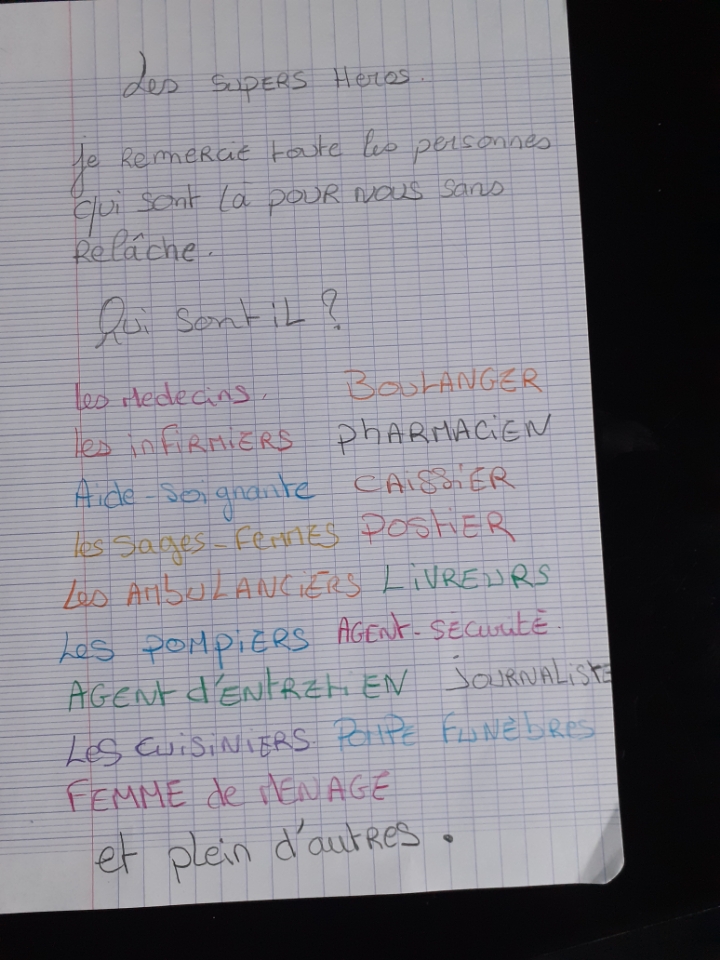 Les supers Heros.
je Remercie toute les personnes
qui sont là pour nous sans
Relâche.
Qui sont iL ?
les Medecins. BOULANGER
les infirmiers phARMACiEN
Aide-Soignante CAISSiER
les Sages-Femmes POStiER
Les AMbULANCiERS LiVREURS
Les POMPiERS AGENt-SECURité.
AGENt d'ENtREtiEN JOURNALiSTE
Les CUiSiNiERS POMPE FUNÈbRES
FEMME de MENAGE
et plein d'autres.